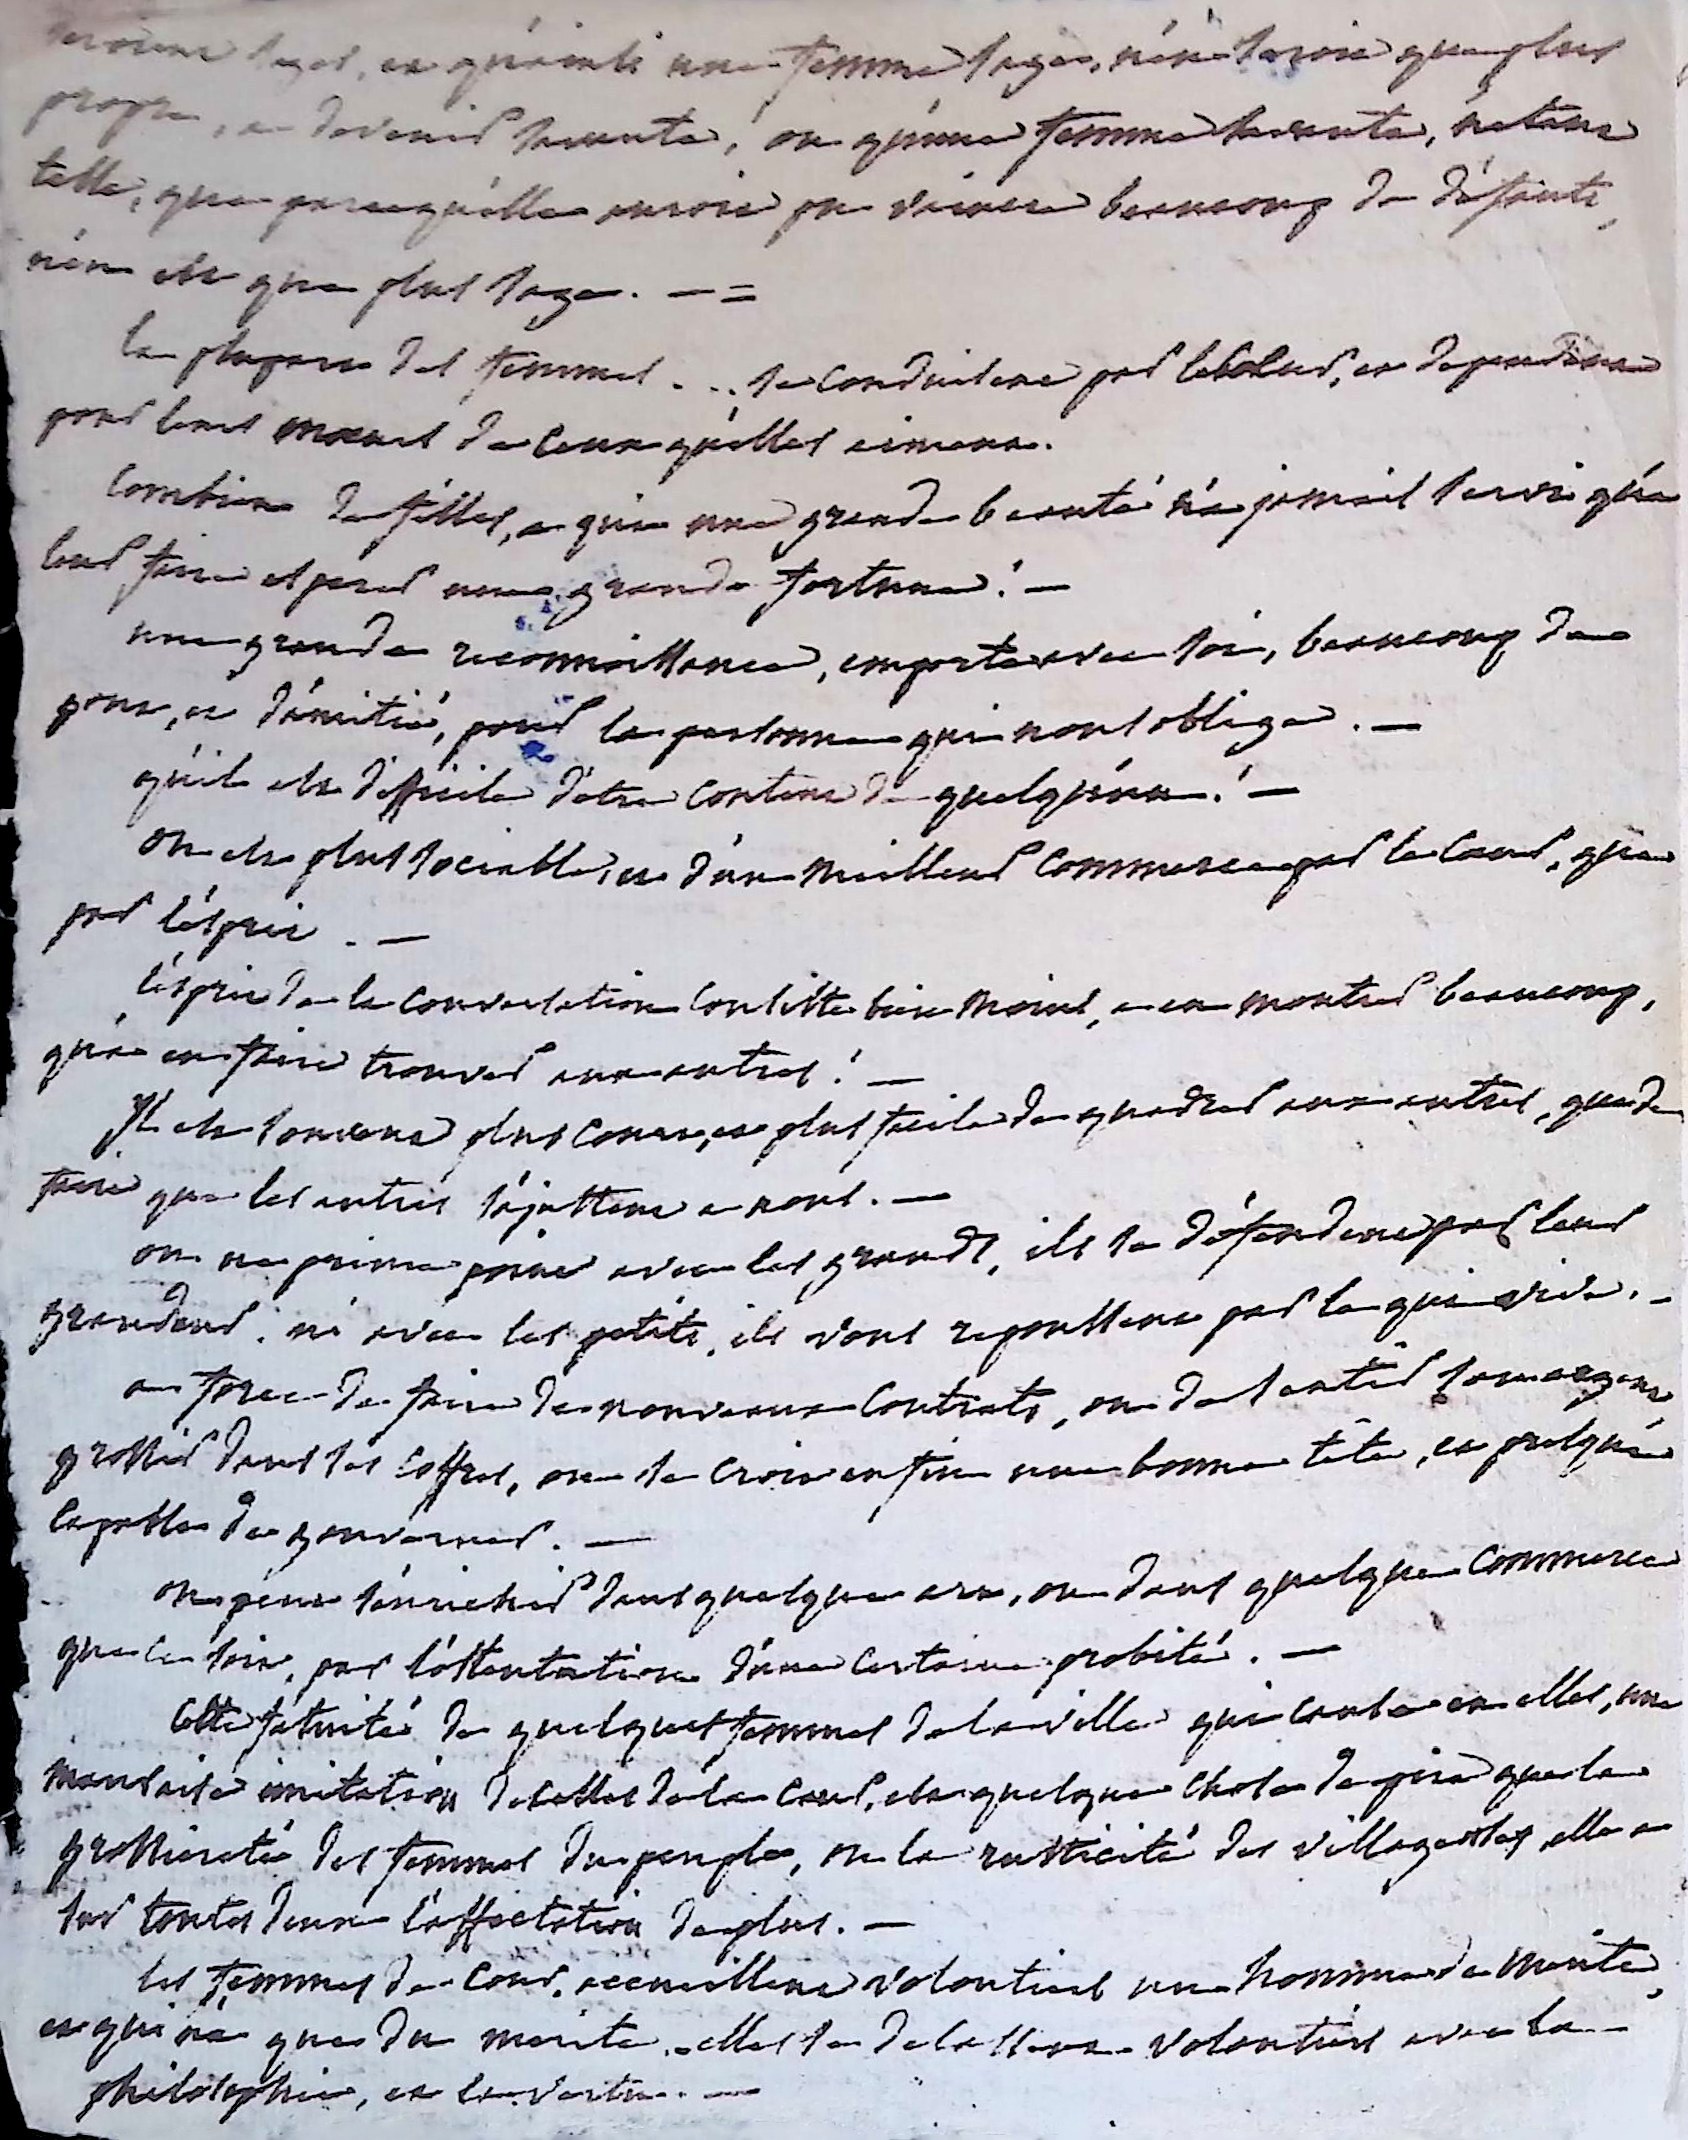 seroient sages, et qu'ainsi une femme sage, n'en seroit que plus
propre, a devenir savante, ou qu'une femme savante, n'etant
telle, que parcequ'elle auroit pu vaincre beaucoup de défauts,
n'en est que plus sage. — =
la plupart des femmes . . . se conduisent par le cœur, et dependent
pour leurs mœurs de ceux qu'elles aiment.
Combien de filles, a qui une grande beauté n'a jamais servi qu'a
leur faire esperer une grande fortune! —
une grande reconnoissance, emporte avec soi, beaucoup de
gout, et d'amitié, pour la personne qui nous oblige. —
qu'il est difficile d'etre content de quelqu'un! —
on est plus sociable, et d'un meilleur commerce par le cœur, que
par l'esprit. —
l'esprit de la conversation consiste bien moins, a en montrer beaucoup,
qu'a en faire trouver aux autres! —
Il est souvent plus court, et plus facile de quadrer aux autres, que de
faire que les autres s'ajustent a nous. —
on ne prime point avec les grands, ils se défendent par leur
grandeur; ni avec les petits, ils vous repoussent par le qui vive. —
a force de faire de nouveaux contrats, ou de sentir son argent
grossir dans ses coffres, on se croit enfin une bonne tête, et presque
capable de gouverner. —
on peut s'enrichir dans quelque art, ou dans quelque commerce
que ce soit, par l'ostentation d'une certaine probité. —
Cette fatuité de quelques femmes de la ville qui cause en elles, une
mauvaise imitation de celles de la cour, est quelque chose de pire que la
grossiereté des femmes du peuple, ou la rusticité des villageoises, elle a
sur toutes deux l'affectation de plus. —
les femmes de cour, accueillent volontiers un homme de merite,
et qui n'a que du merite. elles se delassent volontiers avec la
philosophie, et la vertu. —